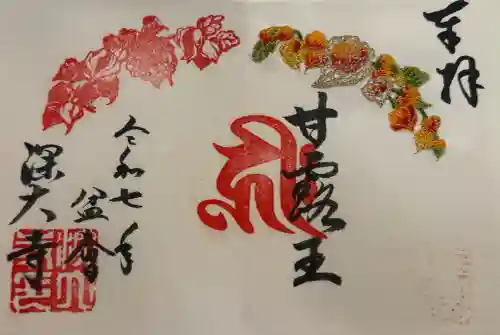 奉拝
甘露王
令和七年
盆會
深大寺